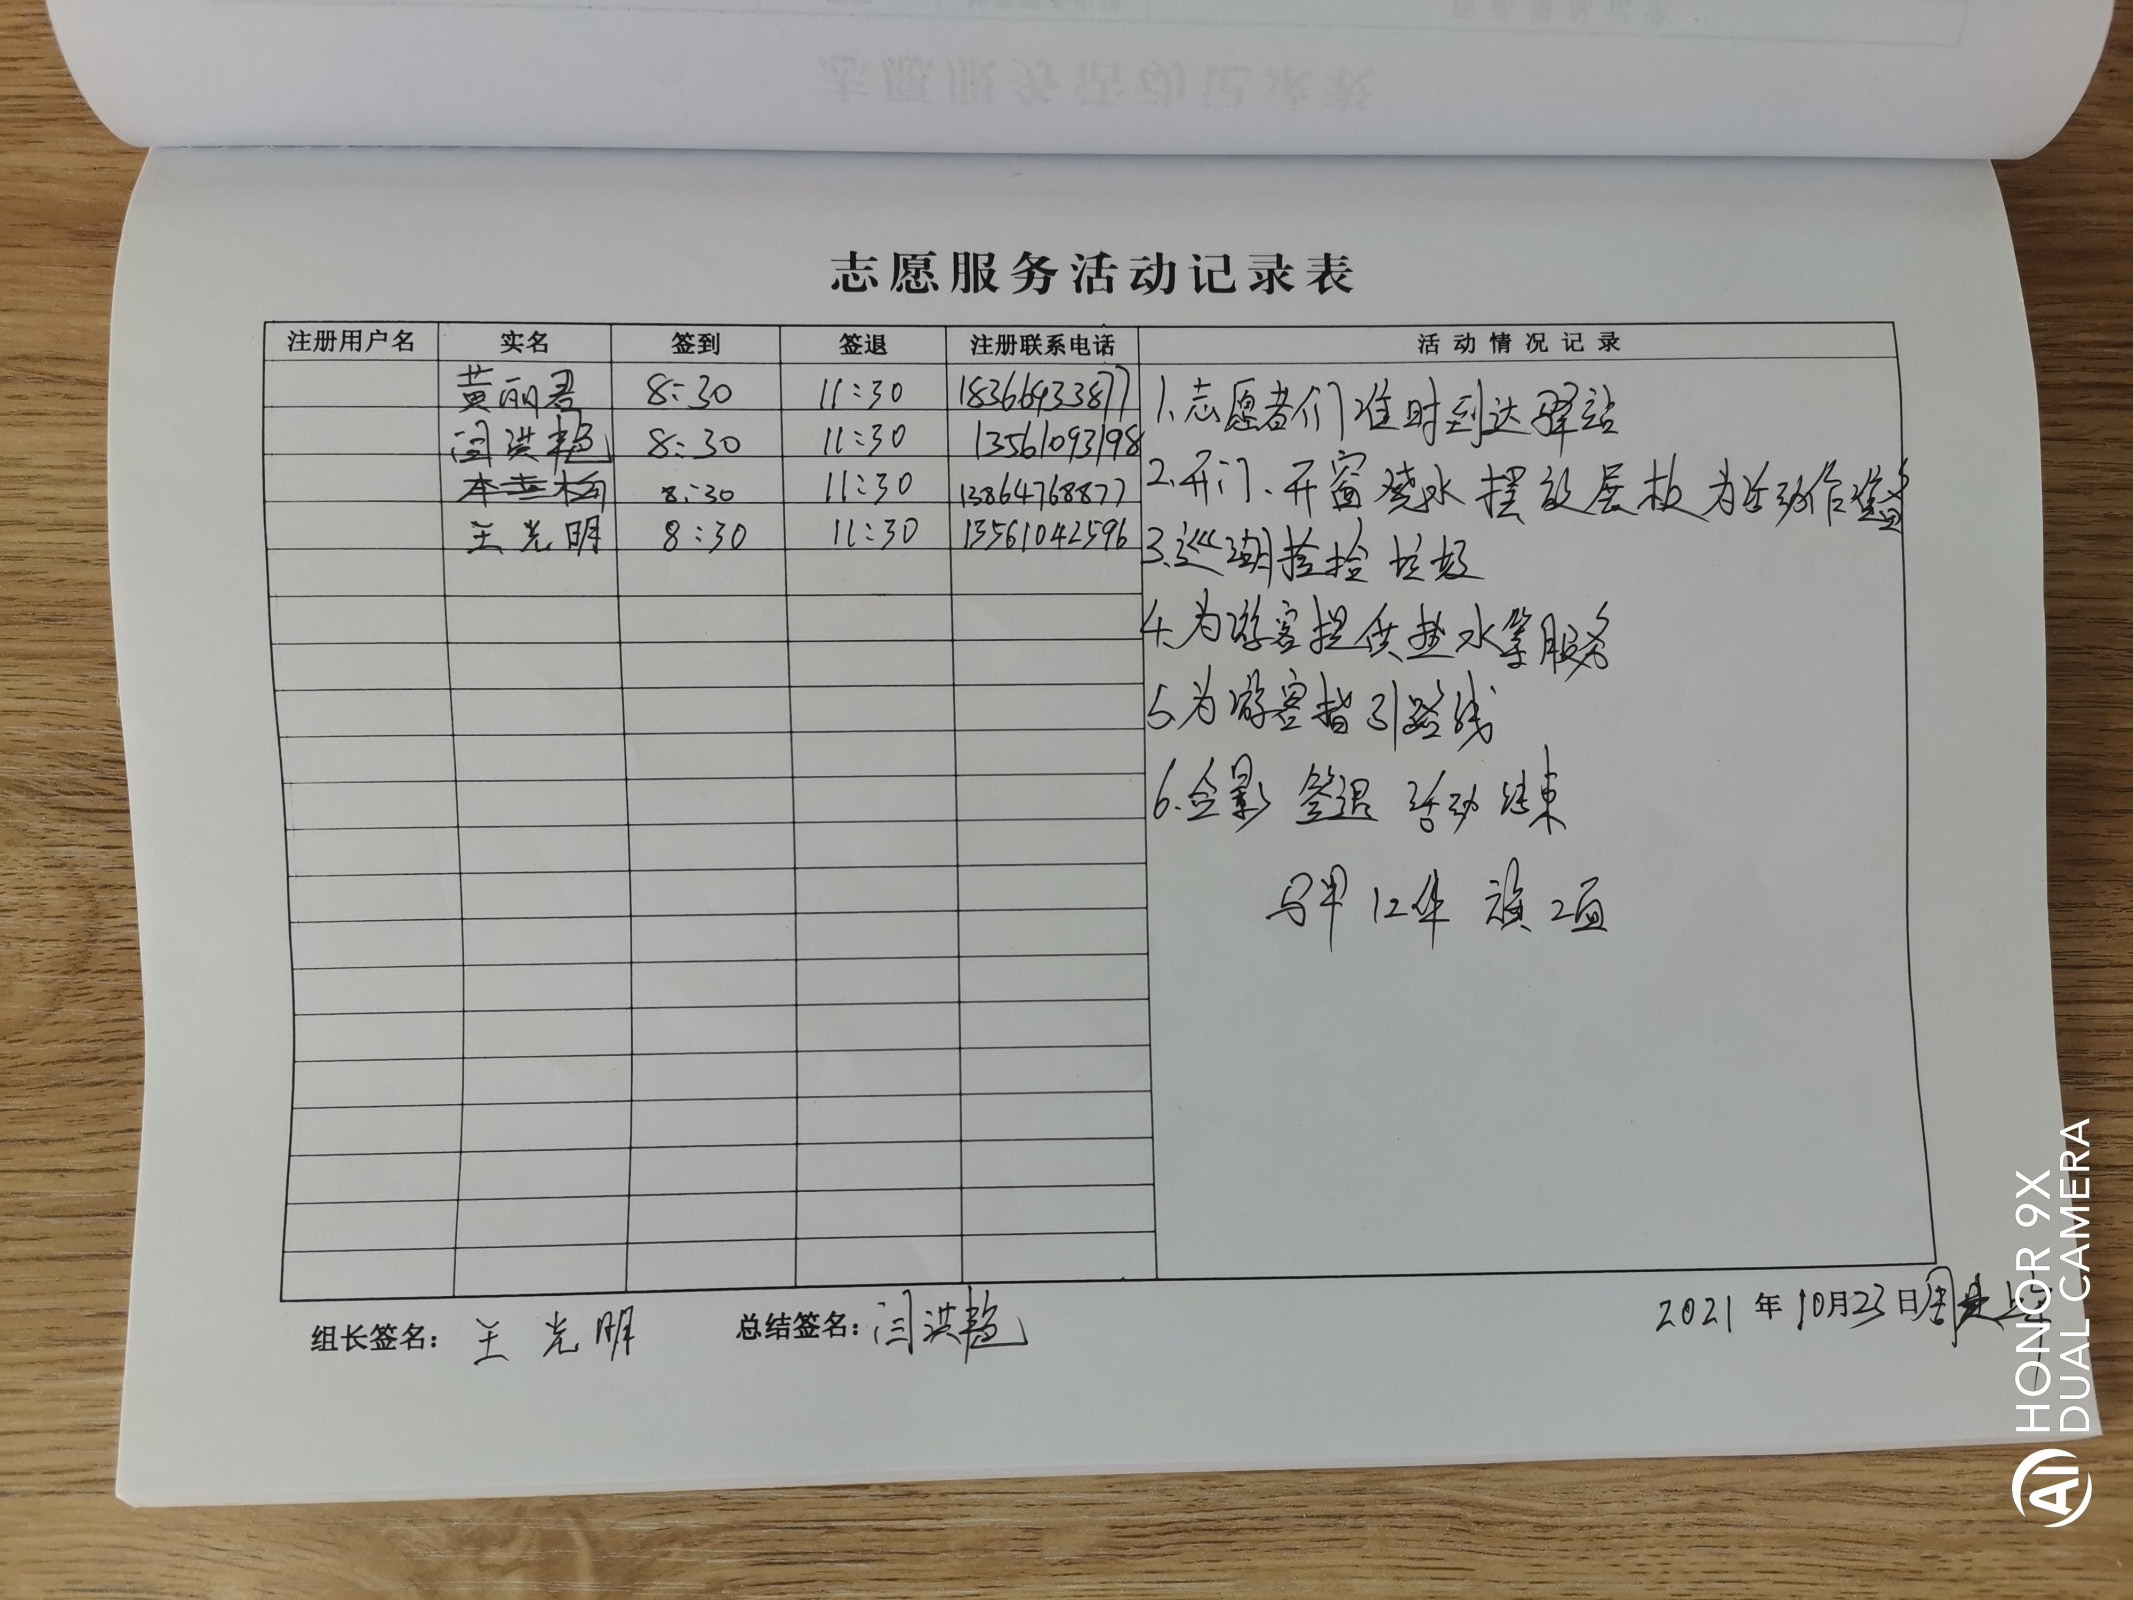 志愿服务活动记录表
注册用户名 实名 签到 签退 注册联系电话 活动情况记录
黄丽君 8:30 11:30 18366933877
闫洪艳 8:30 11:30 13561093198
8:30 11:30 13864768877
王光明 8:30 11:30 13561042596
1.志愿者们准时到达驿站
2.开门、开窗烧水摆放展板为活动作准备
3.巡湖捡捡垃圾
4.为游客提供热水等服务
5.为游客指引路线
6.合影 签退 活动结束
马甲12件 旗2面
组长签名：王光明 总结签名：闫洪艳
2021年10月23日周
HONOR 9X
DUAL CAMERA
AI